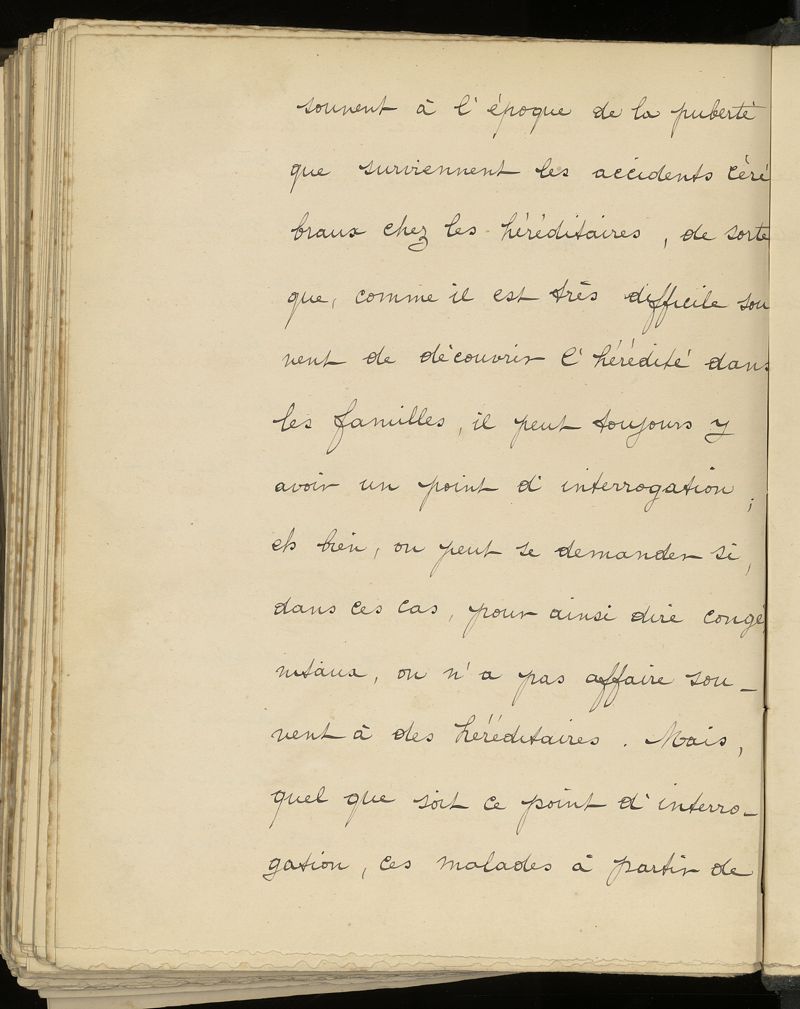 souvent à l'époque de la puberté
que surviennent les accidents céré
braux chez les héréditaires, de sorte
que, comme il est très difficile sou
vent de découvrir l'hérédité dans
les familles, il peut toujours y
avoir un point d'interrogation,
eh bien, on peut se demander si,
dans ces cas, pour ainsi dire congé
nitaux, on n'a pas affaire sou-
vent à des héréditaires. Mais,
quel que soit ce point d'interro-
gation, ces malades à partir de